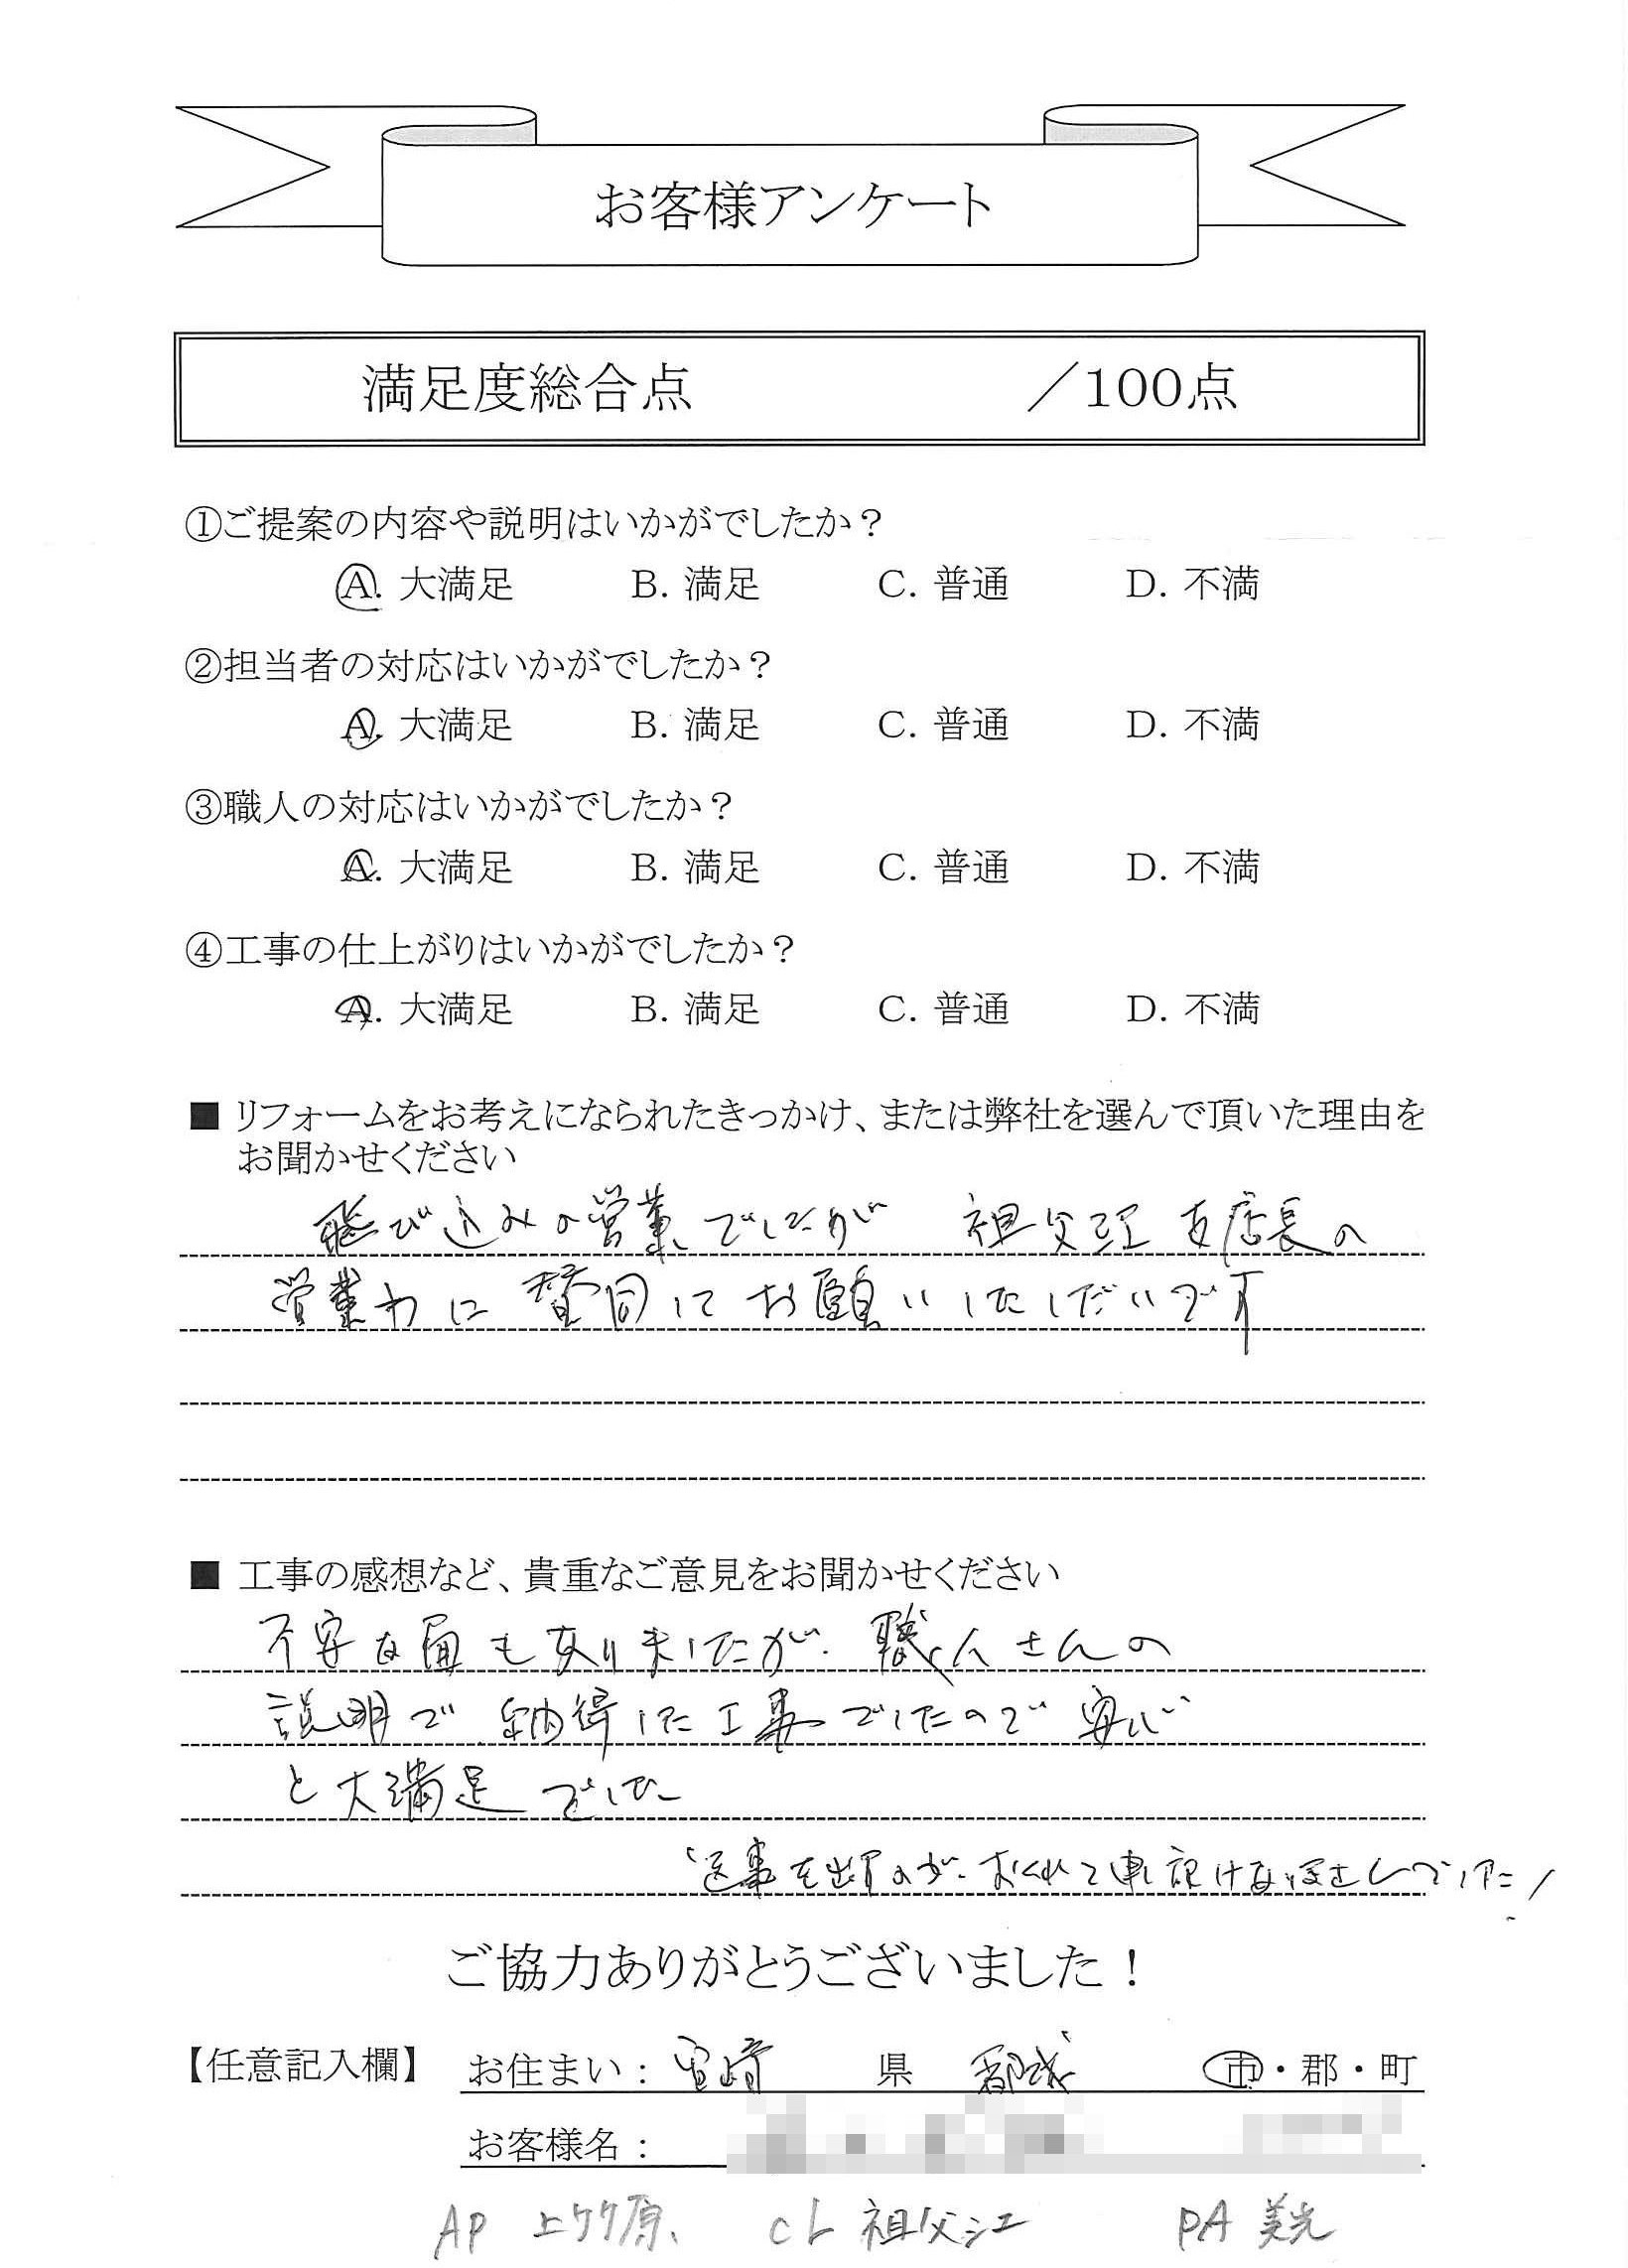 お客様アンケート
満足度総合点 ／100点
①ご提案の内容や説明はいかがでしたか？
A. 大満足 B. 満足 C. 普通 D. 不満
②担当者の対応はいかがでしたか？
A. 大満足 B. 満足 C. 普通 D. 不満
③職人の対応はいかがでしたか？
A. 大満足 B. 満足 C. 普通 D. 不満
④工事の仕上がりはいかがでしたか？
A. 大満足 B. 満足 C. 普通 D. 不満
■ リフォームをお考えになられたきっかけ、または弊社を選んで頂いた理由を
お聞かせください
飛び込みの営業でしたが 祖父江支店長の
営業力に賛同してお願いしたしだいです
■ 工事の感想など、貴重なご意見をお聞かせください
不安な面もありましたが、職人さんの
説明で納得した工事でしたので安心
と大満足でした
返事を出すのが、おくれて申し訳けありませんでした
ご協力ありがとうございました！
【任意記入欄】 お住まい： 宮崎 県 都城 市・郡・町
お客様名：
AP 上ケ原 CL 祖父江 PA 美光